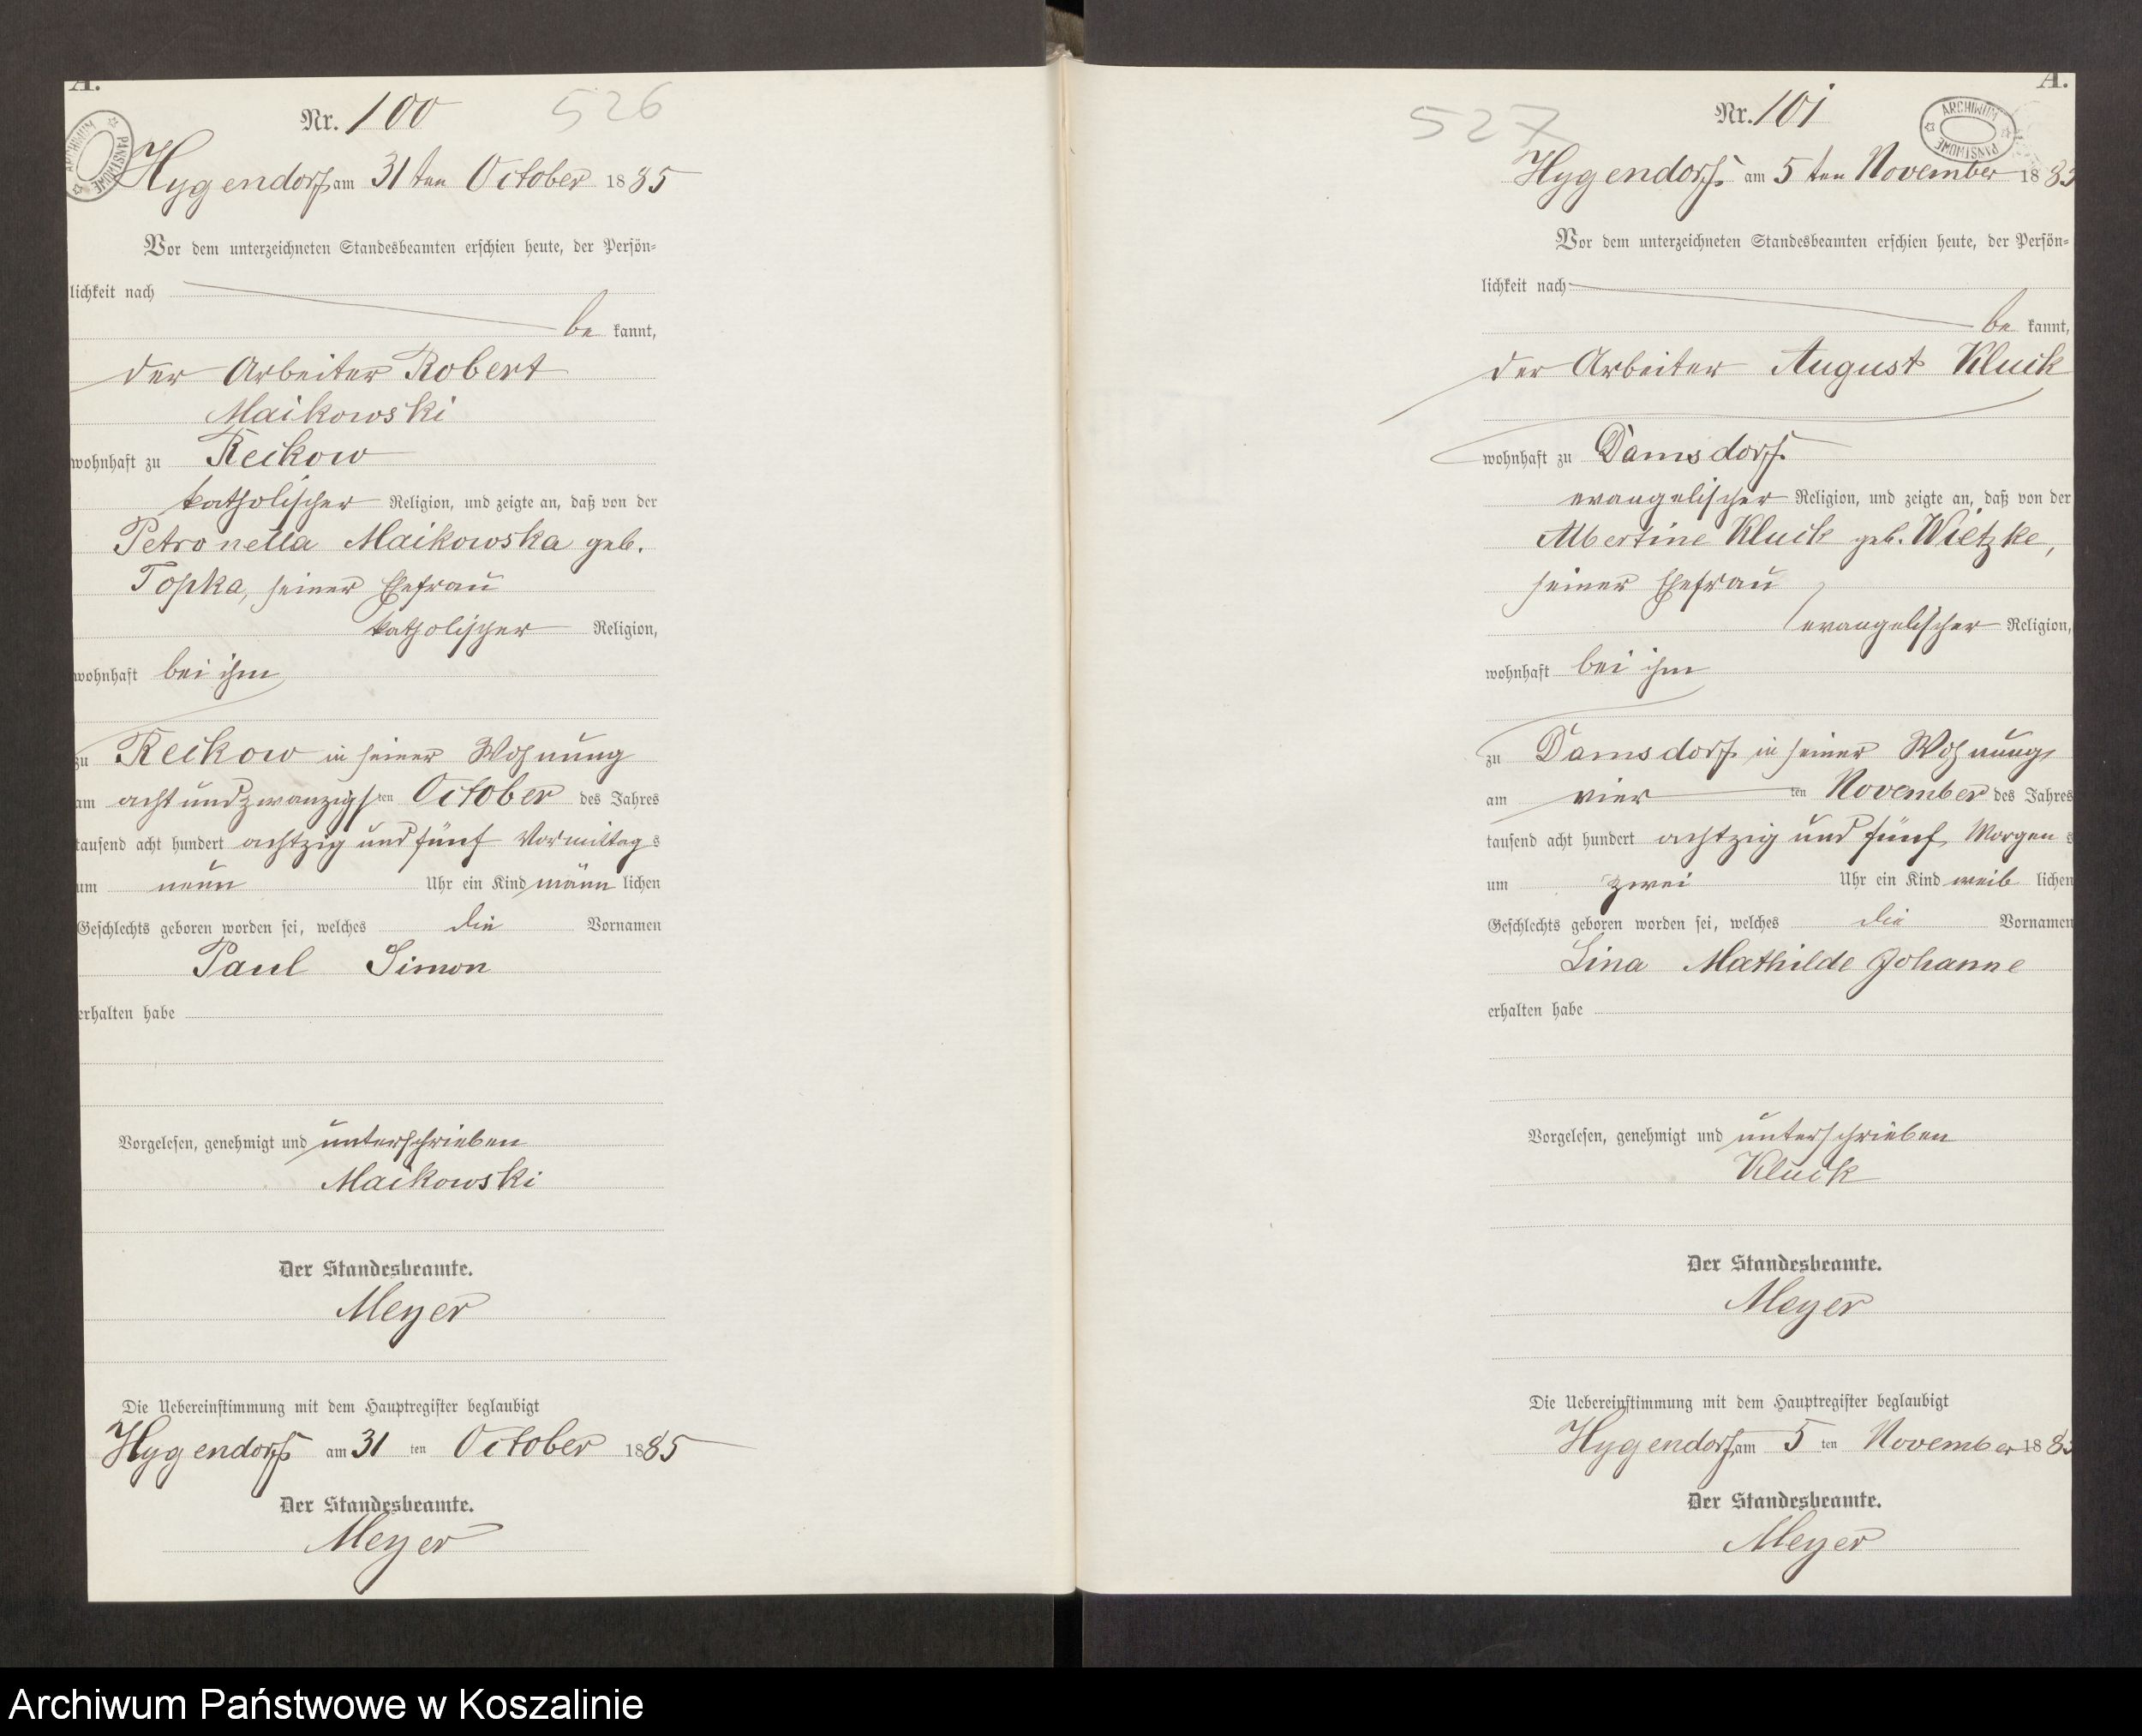 A.
Nr. 100
526
ARCHIWUM PAŃSTWOWE
Hygendorf am 31 ten October 1885
Vor dem unterzeichneten Standesbeamten erschien heute, der Persön=
lichkeit nach
be kannt,
der Arbeiter Robert
Maikowski
wohnhaft zu Reckow
katholischer Religion, und zeigte an, daß von der
Petronella Maikowska geb.
Topka, seiner Ehefrau
katholischer Religion,
wohnhaft bei ihm
zu Reckow in seiner Wohnung
am acht und zwanzigsten October des Jahres
tausend acht hundert achtzig und fünf Vormittags
um neun Uhr ein Kind männlichen
Geschlechts geboren worden sei, welches die Vornamen
Paul Simon
erhalten habe
Vorgelesen, genehmigt und unterschrieben
Maikowski
Der Standesbeamte.
Meyer
Die Uebereinstimmung mit dem Hauptregister beglaubigt
Hygendorf am 31 ten October 1885
Der Standesbeamte.
Meyer
A.
527
Nr. 101
ARCHIWUM PAŃSTWOWE
Hygendorf am 5 ten November 1885
Vor dem unterzeichneten Standesbeamten erschien heute, der Persön=
lichkeit nach
be kannt,
der Arbeiter August Kluck
wohnhaft zu Damsdorf
evangelischer Religion, und zeigte an, daß von der
Albertine Kluck geb. Wietzke,
seiner Ehefrau
evangelischer Religion,
wohnhaft bei ihm
zu Damsdorf in seiner Wohnung
am vier ten November des Jahres
tausend acht hundert achtzig und fünf Morgens
um zwei Uhr ein Kind weiblichen
Geschlechts geboren worden sei, welches die Vornamen
Lina Mathilde Johanne
erhalten habe
Vorgelesen, genehmigt und unterschrieben
Kluck
Der Standesbeamte.
Meyer
Die Uebereinstimmung mit dem Hauptregister beglaubigt
Hygendorf am 5 ten November 1885
Der Standesbeamte.
Meyer
Archiwum Państwowe w Koszalinie